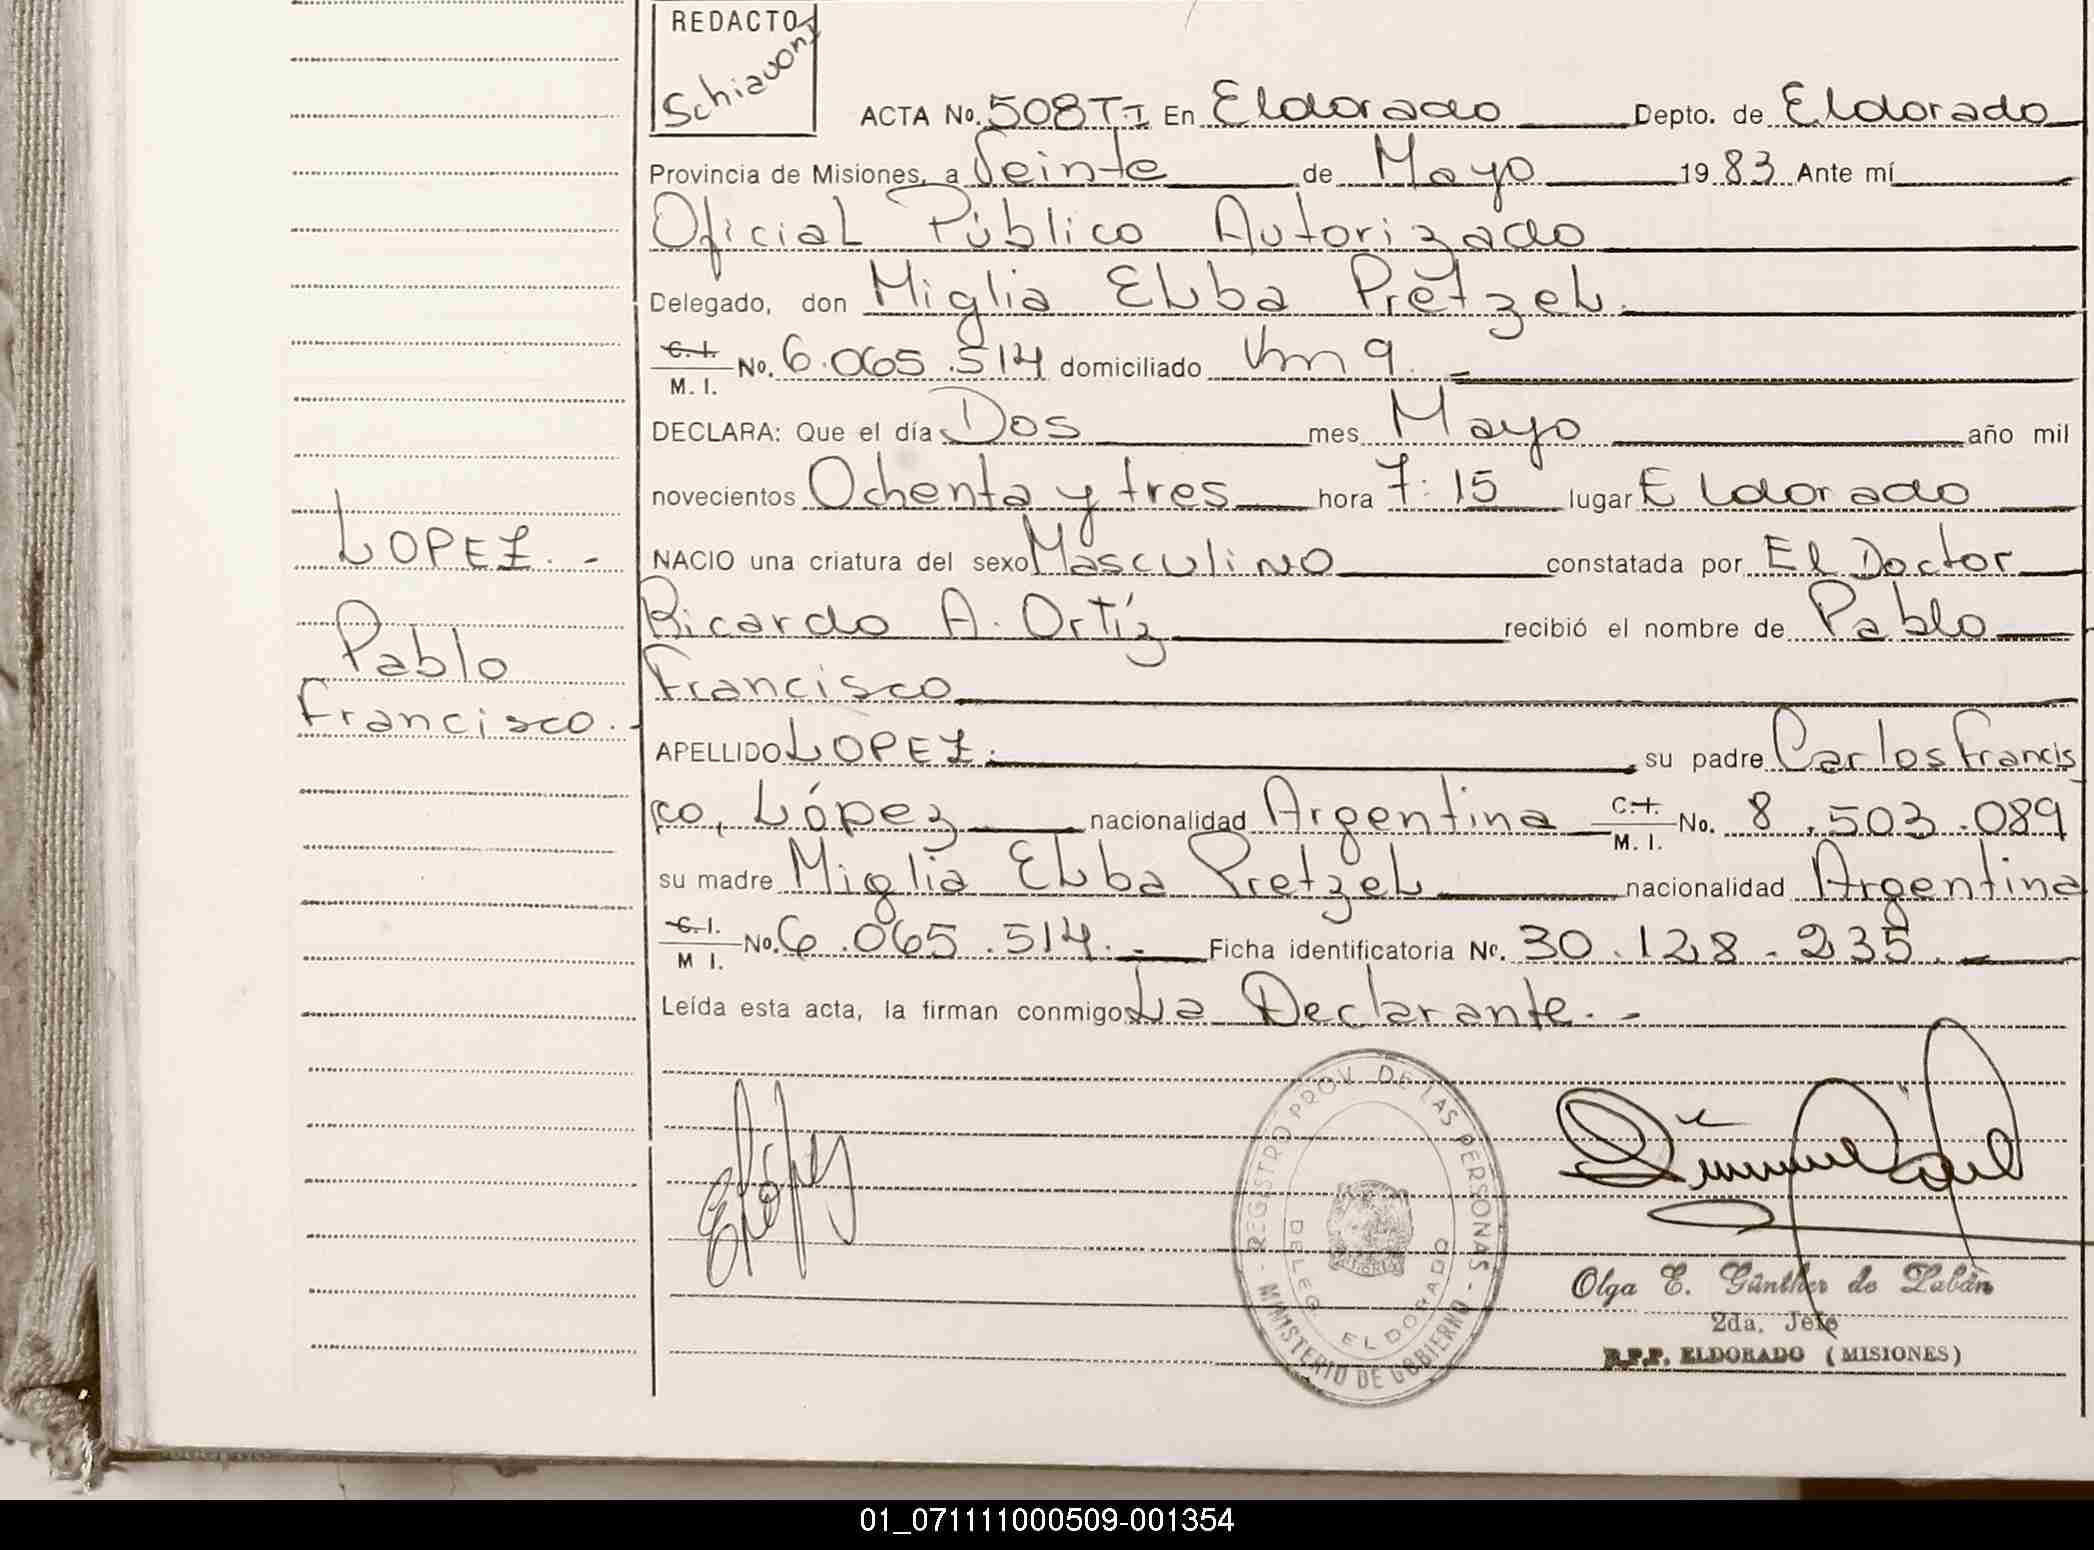 REDACTO
Schiavoni
ACTA No. 508 T-I En Eldorado Depto. de Eldorado
Provincia de Misiones, a Veinte de Mayo 1983 Ante mí
Oficial Público Autorizado
Delegado, don Miglia Elba Pretzel.
C.I.
M. I. No. 6.065.514 domiciliado Km 9.
DECLARA: Que el día Dos mes Mayo año mil
novecientos Ochenta y tres hora 7:15 lugar Eldorado
NACIO una criatura del sexo Masculino constatada por El Doctor
Ricardo A. Ortíz recibió el nombre de Pablo
Francisco
APELLIDO LOPEZ. su padre Carlos Francis
co, López nacionalidad Argentina C.I. M. I. No. 8.503.089
su madre Miglia Elba Pretzel nacionalidad Argentina
C.I. M I. No. 6.065.514.- Ficha identificatoria No. 30.128-235.
Leída esta acta, la firman conmigo La Declarante.-
LOPEZ.-
Pablo
Francisco.-
ELópez
REGISTRO PROV. DE LAS PERSONAS - MINISTERIO DE GOBIERNO -
DELEG ELDORADO
Olga E. Günther de Labán
2da. Jefe
R.P.P. ELDORADO (MISIONES)
01_071111000509-001354